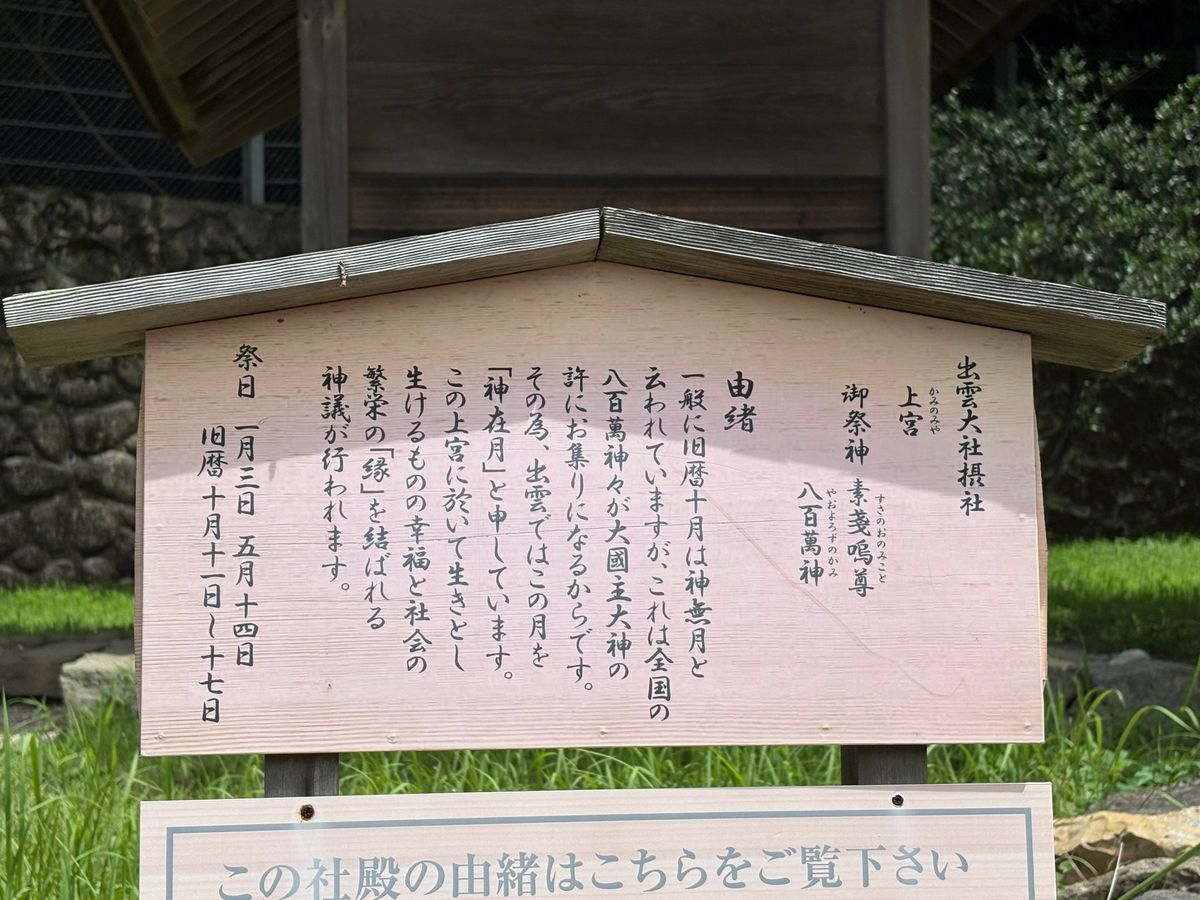 出雲大社摂社
かみのみや
上宮
すさのおのみこと
御祭神 素戔嗚尊
やおよろずのかみ
八百萬神
由緒
一般に旧暦十月は神無月と
云われていますが、これは全国の
八百萬神々が大國主大神の
許にお集りになるからです。
その為、出雲ではこの月を
「神在月」と申しています。
この上宮に於いて生きとし
生けるものの幸福と社会の
繁栄の「縁」を結ばれる
神議が行われます。
祭日 一月三日 五月十四日
旧暦 十月十一日~十七日
この社殿の由緒はこちらをご覧下さい